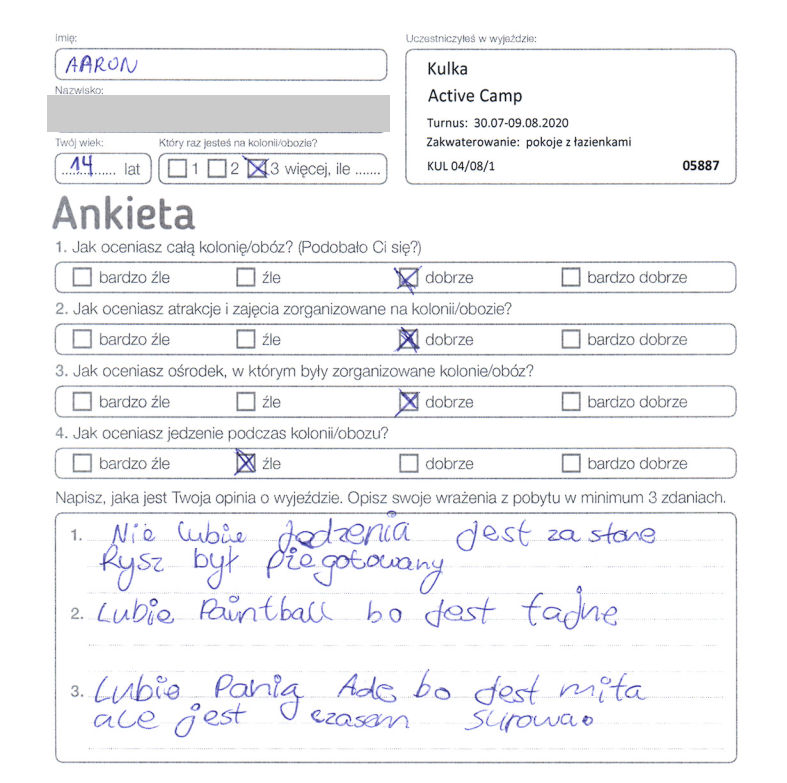 Imię:
AARON
Nazwisko:
Twój wiek:
14 lat
Który raz jesteś na kolonii/obozie?
1 2 3 więcej, ile .......
Uczestniczyłeś w wyjeździe:
Kulka
Active Camp
Turnus: 30.07-09.08.2020
Zakwaterowanie: pokoje z łazienkami
KUL 04/08/1 05887
Ankieta
1. Jak oceniasz całą kolonię/obóz? (Podobało Ci się?)
bardzo źle źle dobrze bardzo dobrze
2. Jak oceniasz atrakcje i zajęcia zorganizowane na kolonii/obozie?
bardzo źle źle dobrze bardzo dobrze
3. Jak oceniasz ośrodek, w którym były zorganizowane kolonie/obóz?
bardzo źle źle dobrze bardzo dobrze
4. Jak oceniasz jedzenie podczas kolonii/obozu?
bardzo źle źle dobrze bardzo dobrze
Napisz, jaka jest Twoja opinia o wyjeździe. Opisz swoje wrażenia z pobytu w minimum 3 zdaniach.
1. Nie lubie Jedzenia Jest za słone
Rysz był piegotowany
2. Lubie Paintball bo Jest fajne
3. Lubie Panią Ade bo Jest miła
ale jest czasem surowa.